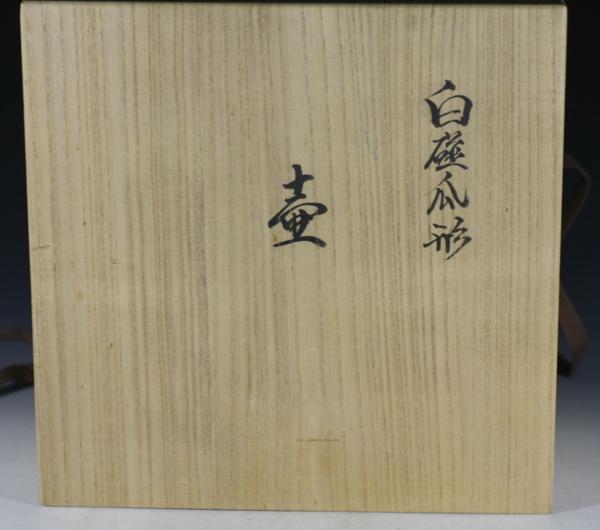 白磁瓜形
壷